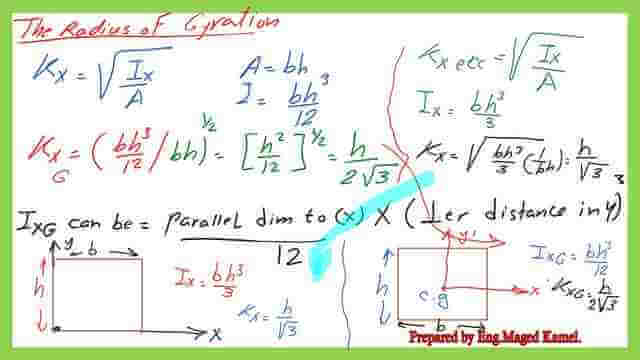 The Radius of Gyration
Kx = √(Ix/A)
A = bh
I = bh³/12
KxG = (bh³/12 / bh)^1/2 = [h²/12]^1/2 = h/2√3
Kx ecc = √(Ix/A)
Ix = bh³/3
Kx = √(bh³/3 (1/bh)) = h/√3
IxG can be = parallel dim to (x) X (⊥er distance in y)³
12
y
b
h
x
Ix = bh³/3
Kx = h/√3
y'
h
c.g
x'
b
IxG = bh³/12
KxG = h/2√3
Prepared by Eng.Maged Kamel.